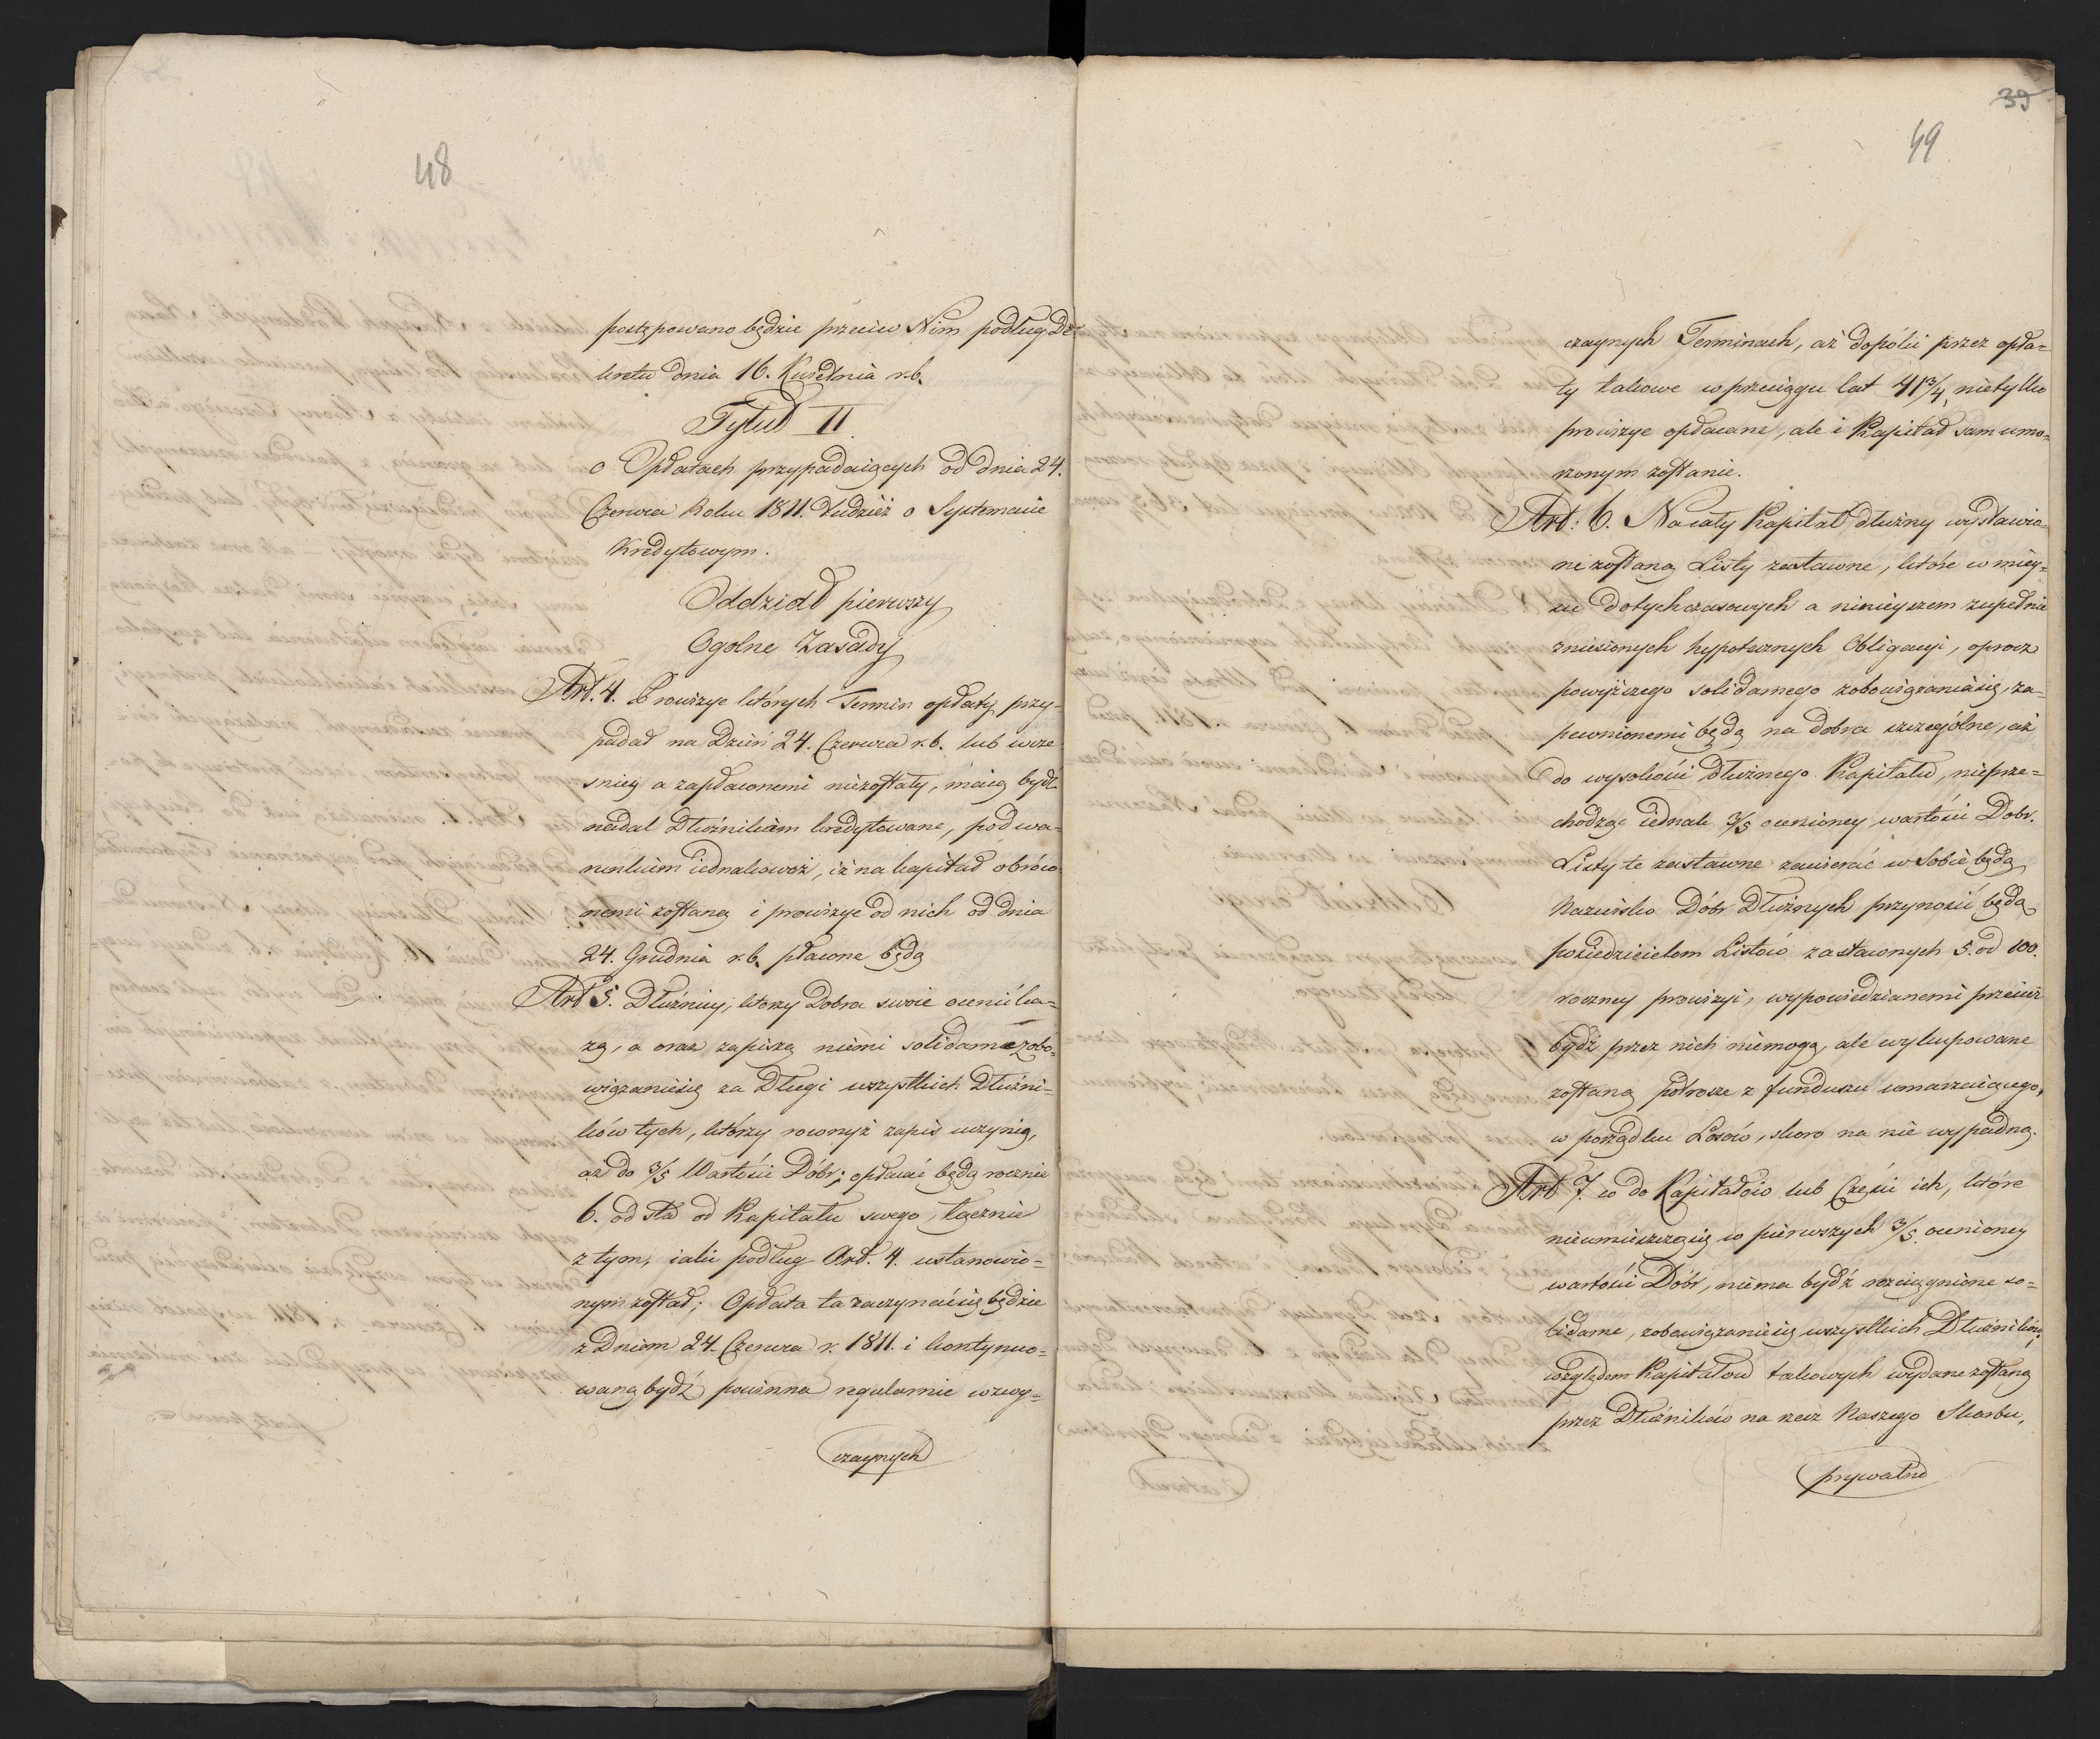 48
postępowano będzie przeciw Nim podług De-
kretu dnia 16. Kwietnia r.b.
Tytuł II
o Opłatach przypadaiących od dnia 24.
Czerwca Roku 1811. tudzież o Systemacie
Kredytowym.
Oddział pierwszy
Ogolne Zasady
Art. 4. Prowizye których Termin opłaty przy-
padał na Dzień 24. Czerwca r.b. lub wcze
sniey a zapłaconemi niezostały, maią bydź
nadal Dłużnikom kredytowane, pod wa-
runkiem iednakowoż, iż na kapitał obróco-
nemi zostaną i prowizye od nich od dnia
24. Grudnia r.b. płacone będą
Art 5. Dłużnicy, ktorzy Dobra swoie ocenić ka-
żą, a oraz zapiszą niemi solidarne zobo-
wiązaniesię za Długi wszystkich Dłużni-
ków tych, którzy rownyż zapis uczynią,
aż do 3/5 Wartości Dóbr; opłacać będą rocznie
6. od sta od Kapitału swego, łącznie
z tym, iaki podług Art. 4. ustanowio-
nym został; Opłata ta zaczynać się będzie
z Dniem 24. Czerwca r. 1811. i kontynuo-
waną bydź powinna regularnie w zwy-
czaynych
39
49
czaynych Terminach, aż dopóki przez opła-
ty takowe w przeciągu lat 41 3/4, nietylko
prowizye opłacane, ale i Kapitał sam umo-
rzonym zostanie.
Art: 6. Na cały Kapitał dłużny wystawio-
ne zostaną Listy zastawne, które w miey-
sce dotychczasowych a ninieyszem zupełnie
zniesionych hypotecznych Obligacyi, oprocz
powyższego solidarnego zobowiązania się, za-
pewnionemi będą na dobra szczególne, aż
do wysokości Dłużnego Kapitału, nieprze-
chodząc iednak 3/5 ocenioney wartości Dobr.
Listy te zastawne zawierać w Sobie będą
Nazwisko Dóbr Dłużnych przynosić będą
posiedzicielom Listow zastawnych 5. od 100.
roczney prowizyi, wypowiedzianemi przecież
bydź przez nich niemogą, ale wykupowane
zostaną potrosze z funduszu umarzaiącego,
w porządku Losow, skoro na nie wypadną.
Art 7. co do Kapitałow lub Części ich, które
nieumieszczą się w pierwszych 3/5. ocenioney
wartości Dóbr, niema bydź rozciągnione so-
lidarne, zobowiązanie się wszystkich Dłużnikow,
względem Kapitałow takowych wydane zostaną
przez Dłużnikow na rzecz Naszego Skarbu,
prywatne